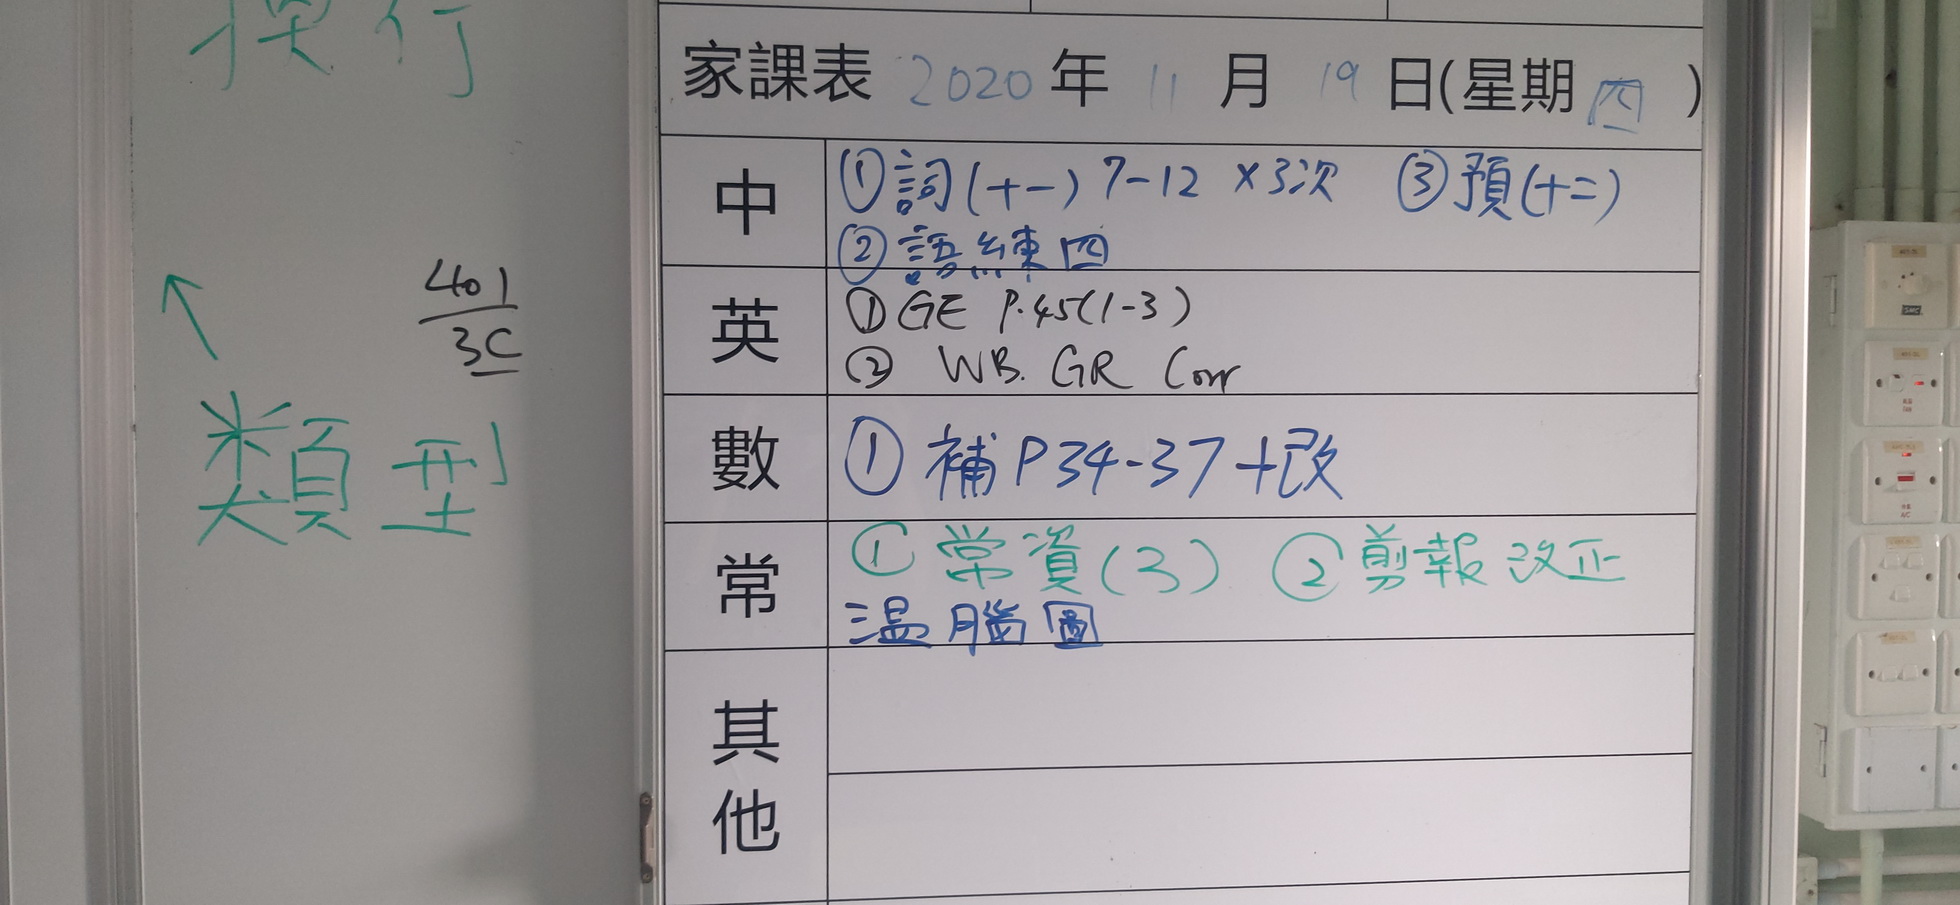 換行
401
3C
類型
家課表 2020 年 11 月 19 日(星期四)
中
①詞(十一) 7-12 ×3次 ③預(十二)
②語練四
英
①GE P.45(1-3)
② WB. GR Corr
數
① 補P34-37+改
常
① 常資(3) ②剪報改正
温腦圖
其他